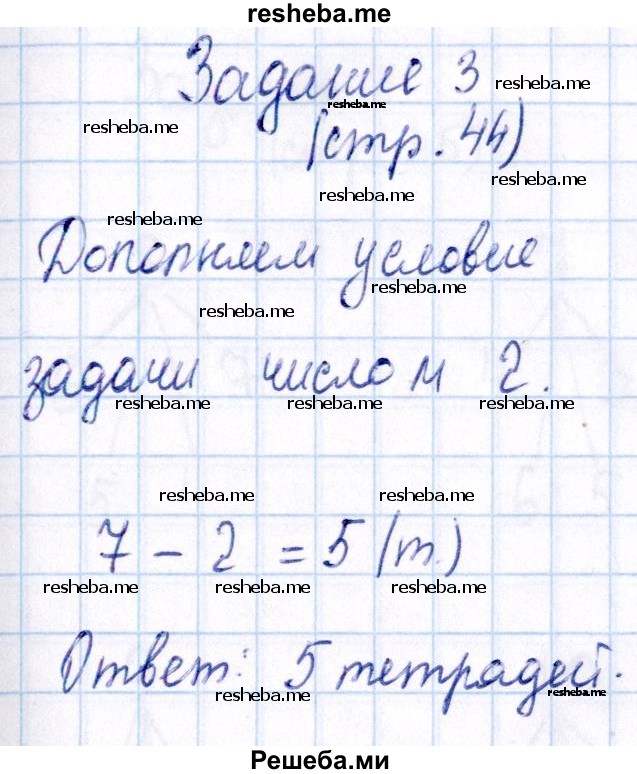 resheba.me
Задание 3
resheba.me
resheba.me
resheba.me
(стр. 44)
resheba.me
resheba.me
resheba.me
Дополняем условие
resheba.me
resheba.me
задачи числом 2.
resheba.me resheba.me resheba.me
resheba.me resheba.me
7 - 2 = 5 (т.)
resheba.me resheba.me resheba.me
Ответ: 5 тетрадей.
resheba.me resheba.me
Решеба.ми